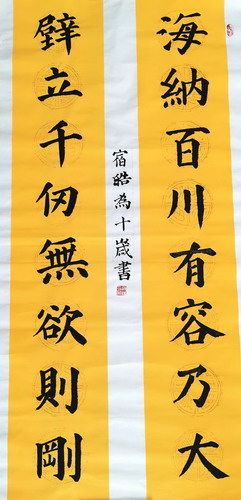 海納百川有容乃大
宿皓為十歲書
壁立千仞無欲則剛